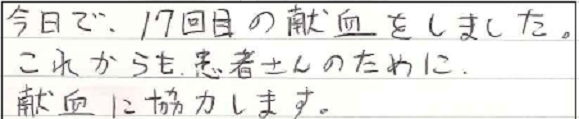 今日で、17回目の献血をしました。
これからも、患者さんのために、
献血に協力します。